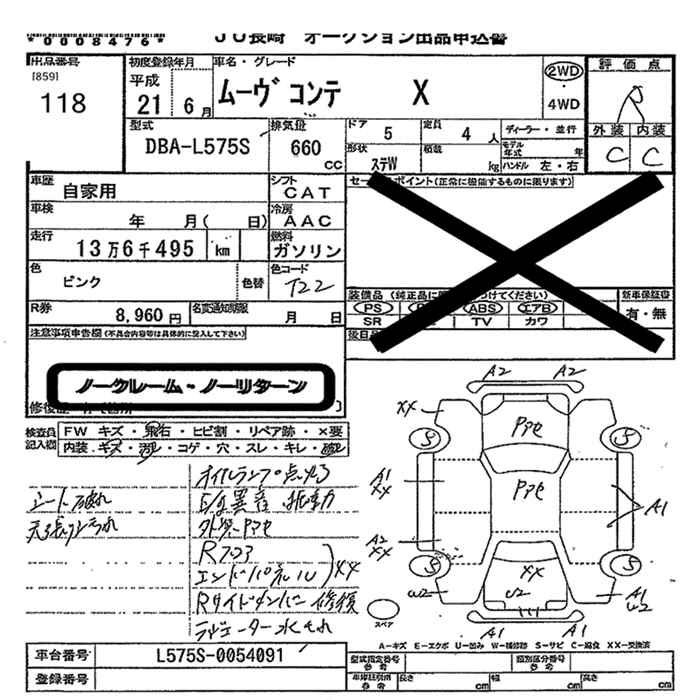 *0008476* JU長崎 オークション出品申込書
出品番号 初度登録年月 車名・グレード 評価点
[859] 平成 2WD
118 21 6月 ムーヴ コンテ X ・ R
4WD
外装 内装
型式 排気量 ドア 5 定員 4人 ディーラー・並行 C C
DBA-L575S 660 CC 形状 ステW 積載 kg モデル年式 年
ハンドル 左・右
車歴 自家用 シフト CAT セールスポイント(正常に機能するものに限ります)
車検 年 月( 日) 冷房 AAC
走行 13万6千495 km 燃料 ガソリン
色 ピンク 色替 色コード T22
装備品 (純正品に つけてください) 新車保証書
R券 8,960円 名変通知期限 月 日 PS ABS エアB 有・無
SR TV カワ
注意事項申告欄(不具合内容等は具体的に記入して下さい) 後日品
ノークレーム・ノーリターン
修復歴
検査員記入欄 FW キズ・飛石・ヒビ割・リペア跡・×要
内装・キズ・汚れ・コゲ・穴・スレ・キレ・破れ
オイルランプ点灯
シート破れ E/g異音 振動
天張り汚れ 外装 PアセR
フロア
エンドパネル XX
Rサイドメンバー修復
ラジエーター水もれ
A2 A2
XX Pアセ
S S
A1 XX Pアセ A1
A2 XX
S XX S
W2 W2 A1 W2
スペア A1 A1
A=キズ E=エクボ U=凹み W=補修跡 S=サビ C=腐食 XX=交換済
車台番号 L575S-0054091 型式指定番号 参考 類別区分番号 参考
登録番号 車庫証明用 参考 長さ cm 幅 cm 高さ cm